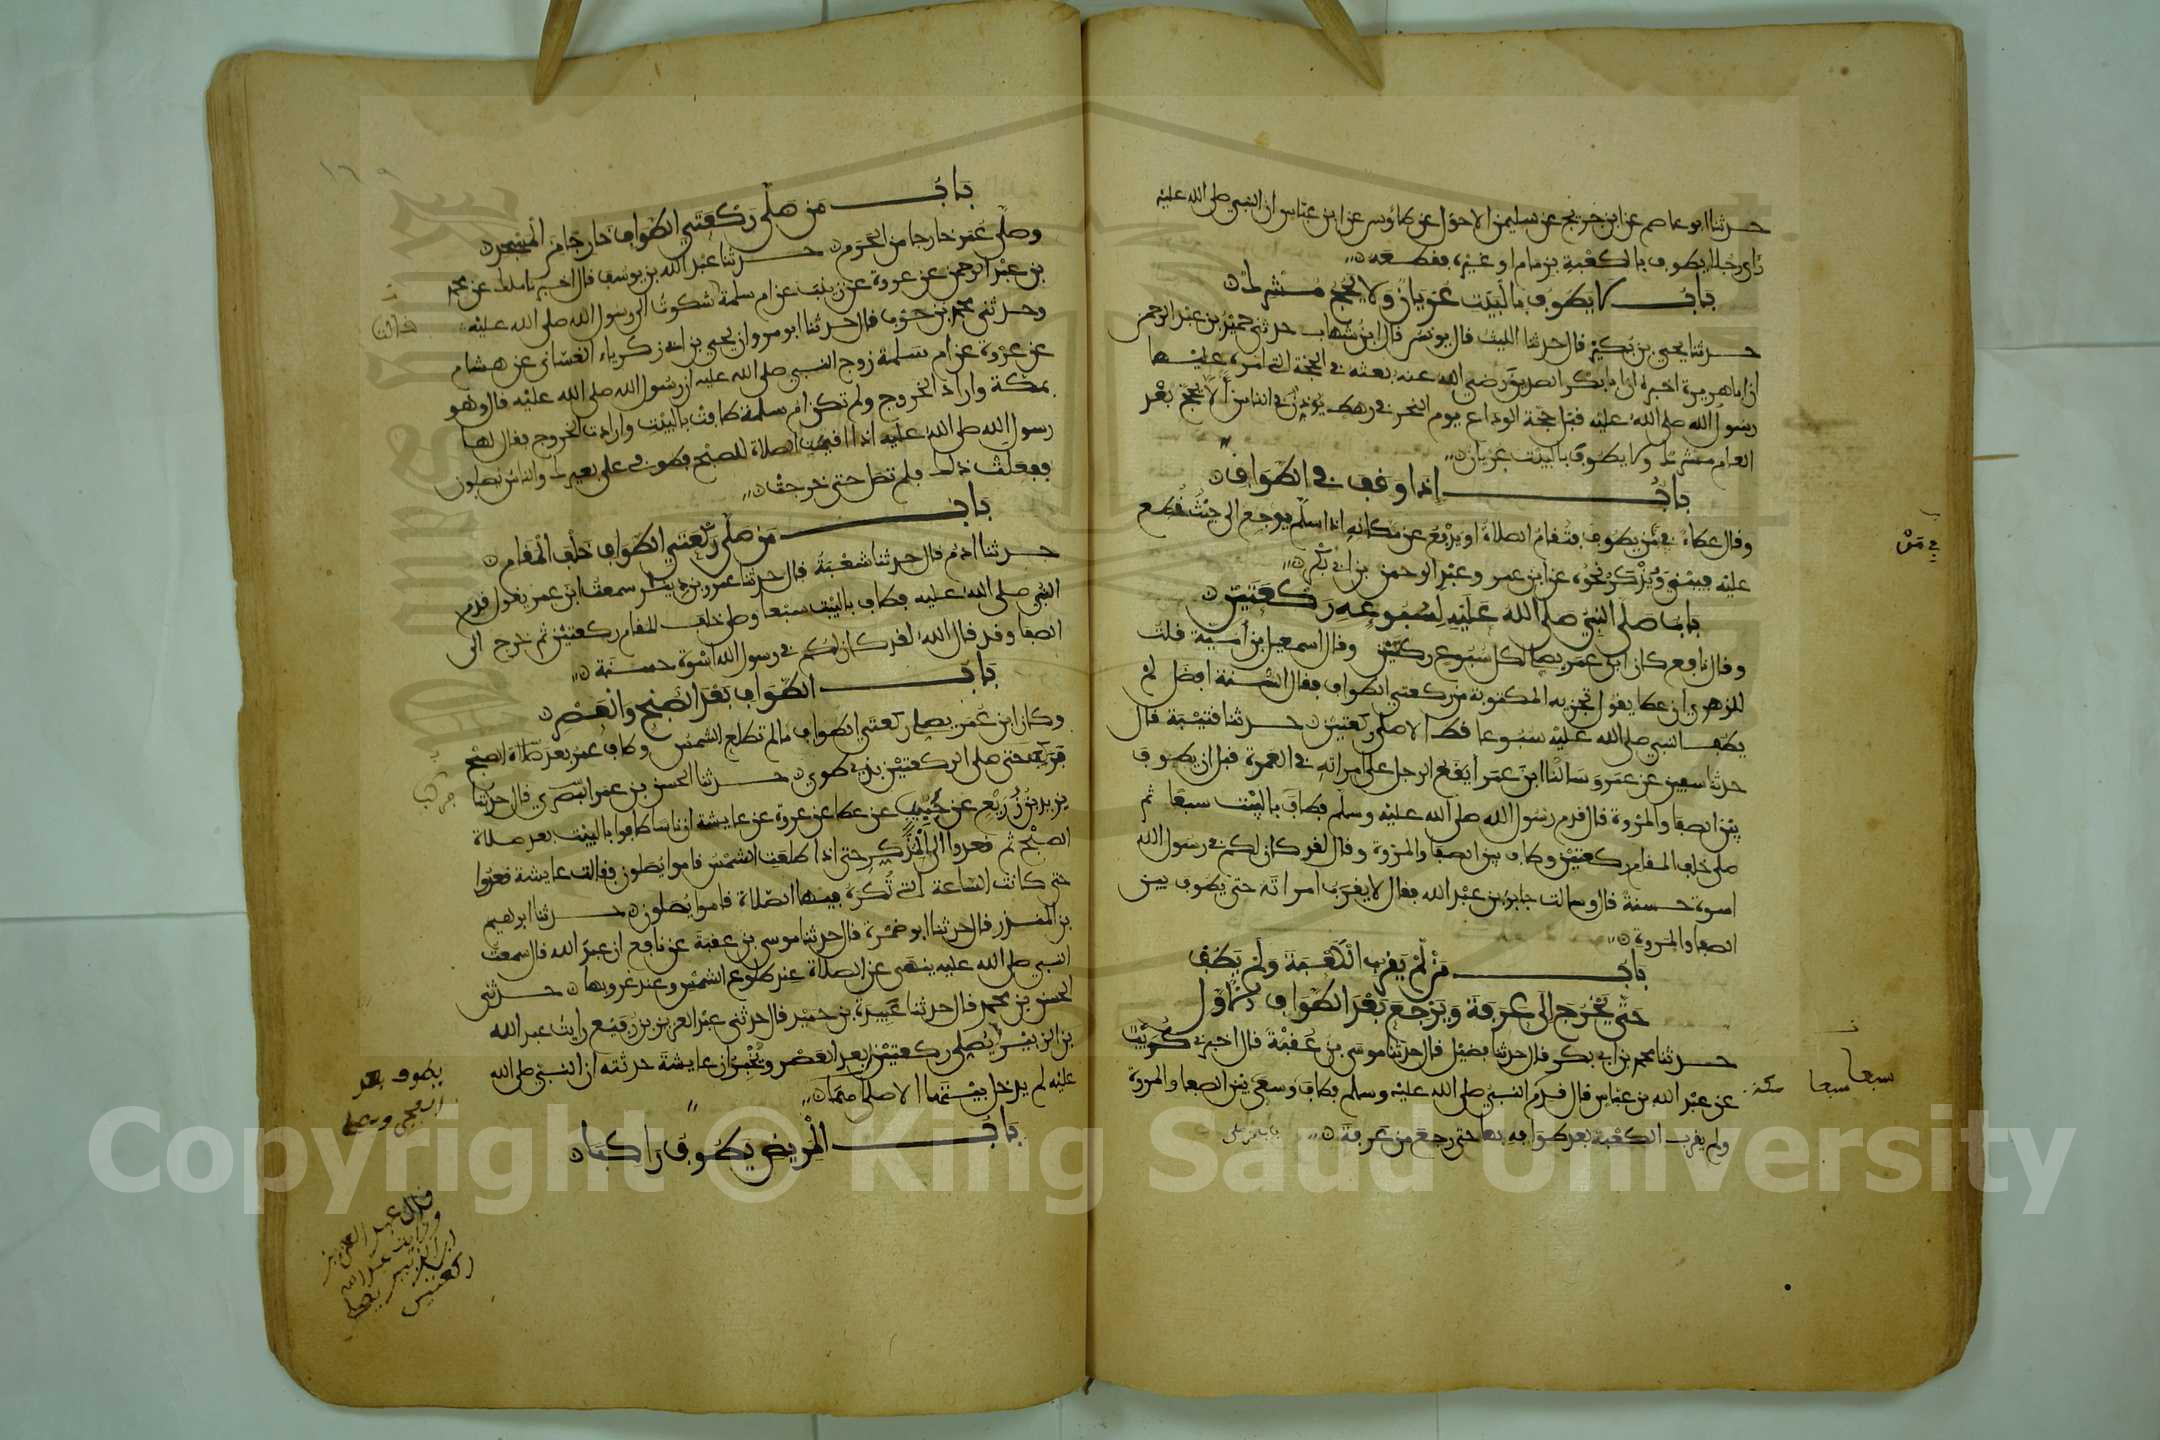 حدثنا ابو عاصم عن ابن جريج عن سليمن الاحول عن طاوس عن ابن عباس ان النبي صلى الله عليه
رأى رجلا يطوف بالكعبة بزمام او غيره فقطعه
باب لا يطوف بالبيت عريان ولا يحج مشرك
حدثنا يحيى بن بكير قال حدثنا الليث قال يونس قال ابن شهاب حدثني حميد بن عبد الرحمن
ان ابا هريرة اخبره ان ابا بكر الصديق رضي الله عنه بعثه في الحجة التي امره عليها
رسول الله صلى الله عليه قبل حجة الوداع يوم النحر في رهط يؤذن في الناس ألا لا يحج بعد
العام مشرك ولا يطوف بالبيت عريان
باب اذا وقف في الطواف
وقال عطاء في من يطوف فتقام الصلاة او يدفع عن مكانه اذا سلم يرجع الى حيث قطع
عليه فيبني ويذكر نحوه عن ابن عمر وعبد الرحمن بن ابي بكر
باب صلى النبي صلى الله عليه لسبوعه ركعتين
وقال نافع كان ابن عمر يصلي لكل سبوع ركعتين وقال اسمعيل بن أمية قلت
للزهري ان عطا يقول تجزيه المكتوبة من ركعتي الطواف فقال السنة افضل لم
يطف النبي صلى الله عليه سبوعا قط الا صلى ركعتين حدثنا قتيبة قال
حدثنا سفين عن عمرو سألنا ابن عمر ايقع الرجل على امراته في العمرة قبل ان يطوف
بين الصفا والمروة قال قدم رسول الله صلى الله عليه وسلم فطاف بالبيت سبعا ثم
صلى خلف المقام ركعتين وطاف بين الصفا والمروة وقال لقد كان لكم في رسول الله
اسوة حسنة قال وسالت جابر بن عبد الله فقال لا يقرب امراته حتى يطوف بين
الصفا والمروة
باب من لم يقرب الكعبة ولم يطف
حتى يخرج الى عرفة ويرجع بعد الطواف الاول
حدثنا محمد بن ابي بكر قال حدثنا فضيل قال حدثنا موسى بن عقبة قال اخبرني كريب
عن عبد الله بن عباس قال قدم النبي صلى الله عليه وسلم فطاف وسعى بين الصفا والمروة
ولم يقرب الكعبة بعد طوافه بها حتى رجع من عرفة
في من
سبعا سبعا مكة
باب من صلى ركعتي الطواف خارجا من المسجد
وصلى عمر خارجا من الحرم حدثنا عبد الله بن يوسف قال اخبرنا ملك عن محمد
بن عبد الرحمن عن عروة عن زينب عن ام سلمة شكوت الى رسول الله صلى الله عليه
وحدثني محمد بن حرب قال حدثنا ابو مروان يحيى بن ابي زكرياء الغساني عن هشام
عن عروة عن ام سلمة زوج النبي صلى الله عليه ان رسول الله صلى الله عليه قال وهو
بمكة واراد الخروج ولم تكن ام سلمة طافت بالبيت وارادت الخروج فقال لها
رسول الله صلى الله عليه اذا اقيمت الصلاة للصبح فطوفي على بعيرك والناس يصلون
ففعلت ذلك فلم تصل حتى خرجت
باب من صلى ركعتي الطواف خلف المقام
حدثنا ادم قال حدثنا شعبة قال حدثنا عمرو بن دينار سمعت ابن عمر يقول قدم
النبي صلى الله عليه فطاف بالبيت سبعا وصلى خلف المقام ركعتين ثم خرج الى
الصفا وقد قال الله لقد كان لكم في رسول الله اسوة حسنة
باب الطواف بعد الصبح والعصر
وكان ابن عمر يصلي ركعتي الطواف ما لم تطلع الشمس وطاف عمر بعد صلاة الصبح
فركب حتى صلى الركعتين بذي طوى حدثنا الحسن بن عمر البصري قال حدثنا
يزيد بن زريع عن حبيب عن عطا عن عروة عن عايشة ان ناسا طافوا بالبيت بعد صلاة
الصبح ثم قعدوا الى المذكر حتى اذا طلعت الشمس قاموا يصلون فقالت عايشة قعدوا
حتى كانت الساعة التي تكره فيها الصلاة قاموا يصلون حدثنا ابرهيم
بن المنذر قال حدثنا ابو ضمرة قال حدثنا موسى بن عقبة عن نافع ان عبد الله قال سمعت
النبي صلى الله عليه ينهى عن الصلاة عند طلوع الشمس وعند غروبها حدثني
الحسن بن محمد قال حدثنا عبيدة بن حميد قال حدثني عبد العزيز بن رفيع رايت عبد الله
بن الزبير يصلي ركعتين بعد العصر ويخبر ان عايشة حدثته ان النبي صلى الله
عليه لم يدخل بيتها الا صلاهما
باب المريض يطوف راكبا
يطوف بعد
الفجر ويصلي
قال عبد العزيز
ورايت عبد الله
ابن الزبير يصلي
ركعتين
Copyright © King Saud University